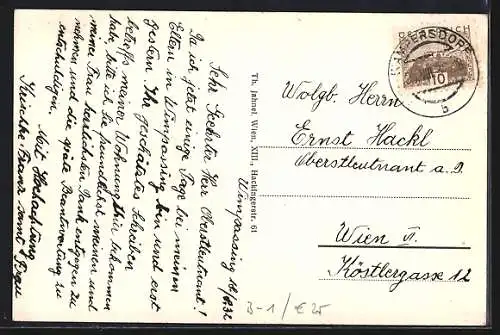 Wimpassing 16/8.32
Sehr Geehrter Herr Oberstleutnant!
Da ich jetzt einige Tage bei meinen
Eltern in Wimpassing bin und erst
gestern Ihr geschätztes Schreiben
betreffs meiner Wohnung hier bekommen
habe, bitte ich Sie freundlichst meinen und
meiner Frau herzlichsten Dank entgegen zu
nehmen und die späte Beantwortung zu
entschuldigen.
Mit Hochachtung
Franz samt Frau
Th. Jahnel, Wien, XIII., Hacklingerstr. 61
ÖSTERREICH
10
b
Wolgb. Herrn
Ernst Hackl
Oberstleutnant a. D.
Wien VI.
Köstlergasse 12
B-1/€25